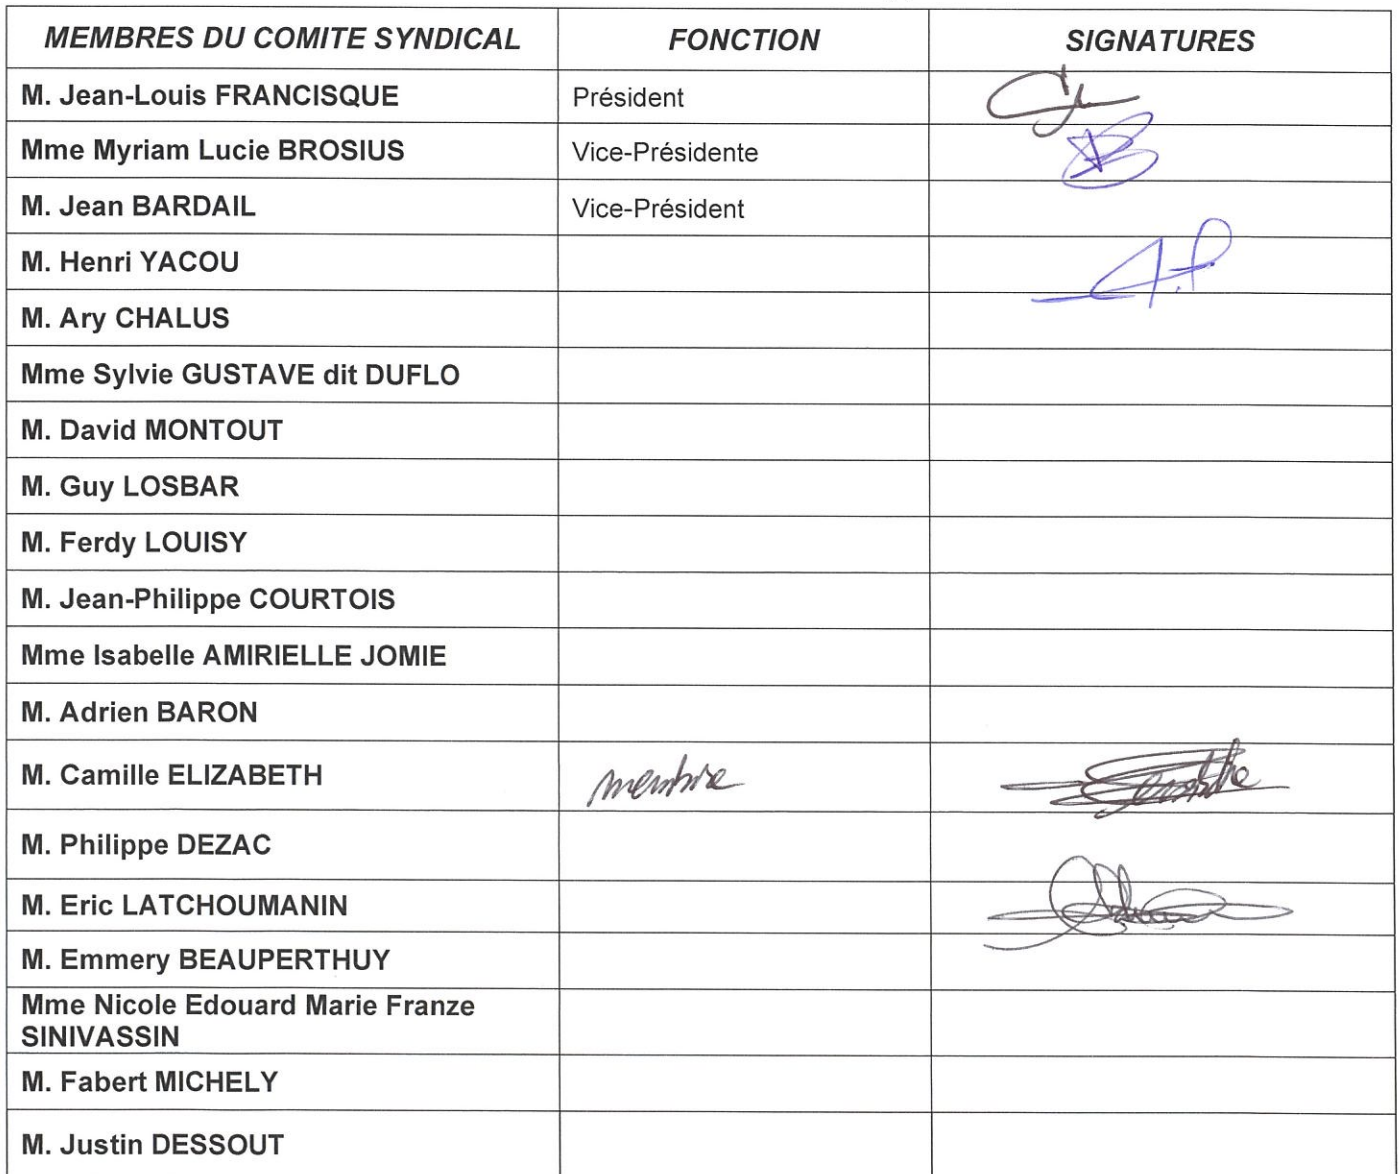 MEMBRES DU COMITE SYNDICAL FONCTION SIGNATURES
M. Jean-Louis FRANCISQUE Président
Mme Myriam Lucie BROSIUS Vice-Présidente
M. Jean BARDAIL Vice-Président
M. Henri YACOU
M. Ary CHALUS
Mme Sylvie GUSTAVE dit DUFLO
M. David MONTOUT
M. Guy LOSBAR
M. Ferdy LOUISY
M. Jean-Philippe COURTOIS
Mme Isabelle AMIRIELLE JOMIE
M. Adrien BARON
M. Camille ELIZABETH membre
M. Philippe DEZAC
M. Eric LATCHOUMANIN
M. Emmery BEAUPERTHUY
Mme Nicole Edouard Marie Franze
SINIVASSIN
M. Fabert MICHELY
M. Justin DESSOUT